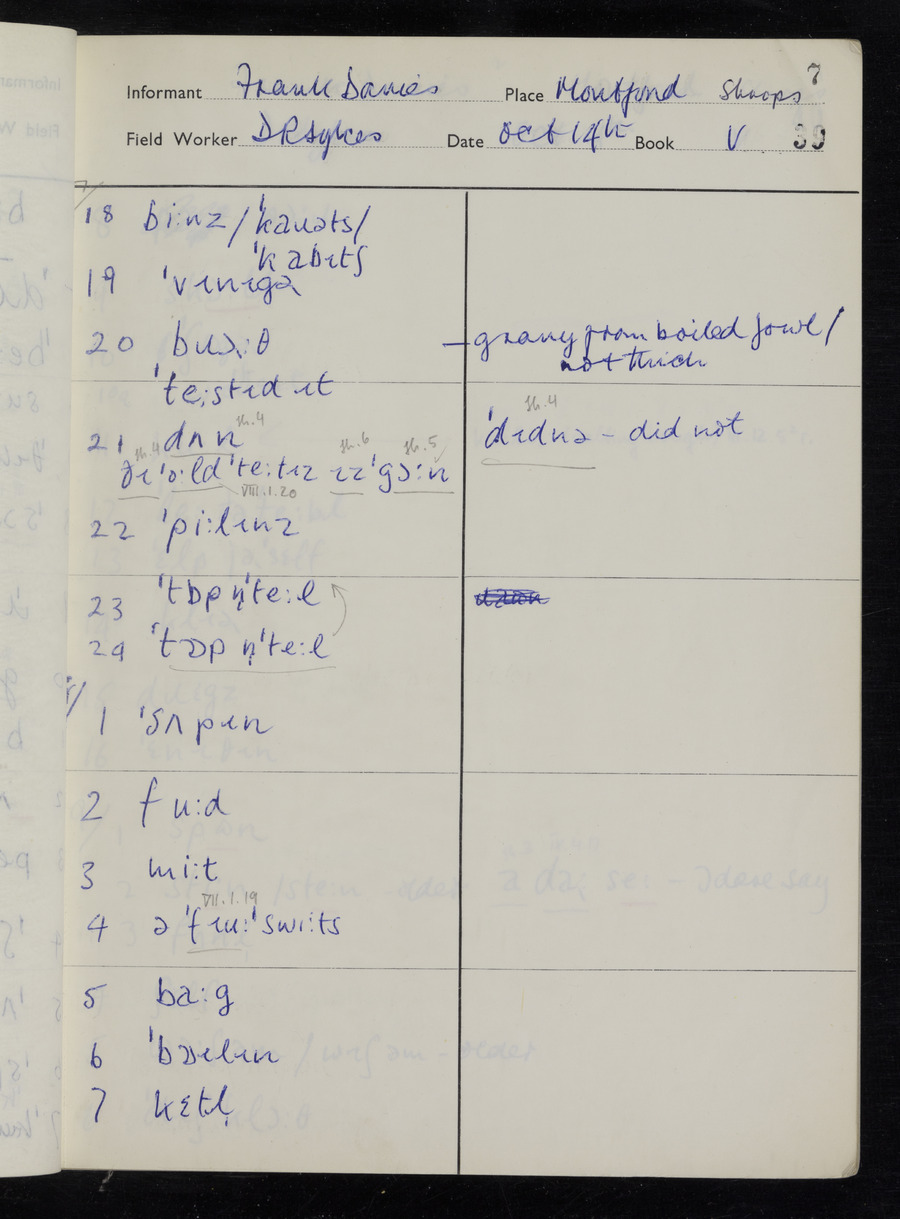 7
Informant Frank Davies Place Montford Shrops
Field Worker D R Sykes Date Oct 14th Book V 39
7/
18 bi:nz / 'kaɹəts /
'kabɪtʃ
19 'vɪnɪgə
20 bɹɔ:θ — gravy from boiled fowl /
not thick
'te:stɪd ɪt
21 dʌn sh.4 'dɪdnə – did not sh.4
sh.4 sh.6 sh.5
ðɪ 'o:ld 'te:tɪz ɪz 'gɔ:n
VIII.1.20
22 'pi:lɪnz
23 'tɒp n̩'te:l
24 'tɒp n̩'te:l
8/
1 'sʌpɪn
2 fu:d
3 mi:t
VII.1.19
4 ə 'fɪu: 'swi:ts
5 ba:g
6 'bɔɪlɪn
7 kɛtl̩